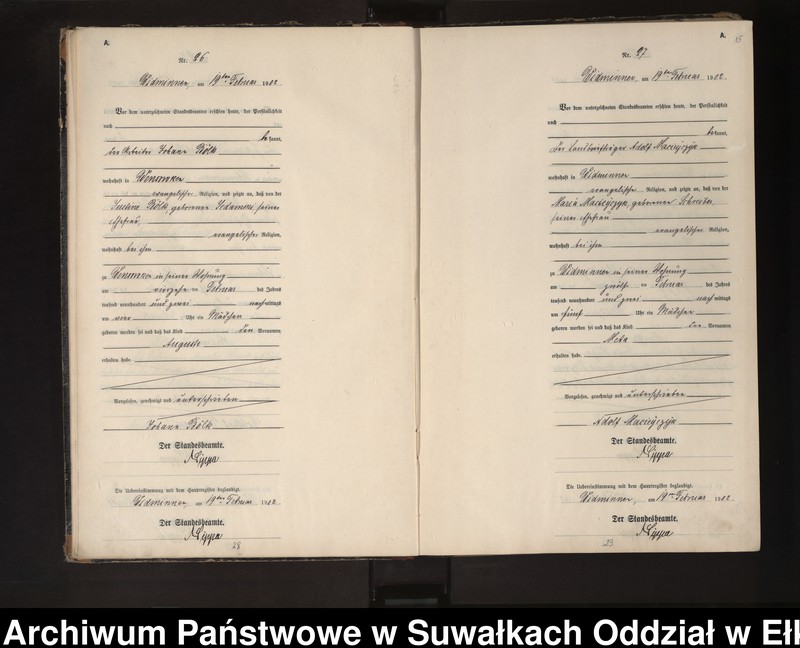 A.
Nr. 26
Widminnen, am 19ten Februar 1902
Vor dem unterzeichneten Standesbeamten erschien heute, der Persönlichkeit
nach
bekannt,
der Arbeiter Johann
wohnhaft in
evangelischer Religion, und zeigte an, daß von der
geborenen seiner
Ehefrau,
evangelischer Religion,
wohnhaft bei ihm
zu in seiner Wohnung
am vierzehn ten Februar des Jahres
tausend neunhundert und zwei nachmittags
um Uhr ein Mädchen
geboren worden sei und daß das Kind den Vornamen
Auguste
erhalten habe.
Vorgelesen, genehmigt und unterschrieben
Johann
Der Standesbeamte.
Die Uebereinstimmung mit dem Hauptregister beglaubigt.
Widminnen, am 19ten Februar 1902
Der Standesbeamte.
A.
15
Nr. 27
Widminnen, am 19ten Februar 1902
Vor dem unterzeichneten Standesbeamten erschien heute, der Persönlichkeit
nach
bekannt,
der Adolf Macziejczyk
wohnhaft in Widminnen
evangelischer Religion, und zeigte an, daß von der
Maria Macziejczyk, geborenen
seiner Ehefrau
evangelischer Religion,
wohnhaft bei ihm
zu Widminnen in seiner Wohnung
am ten Februar des Jahres
tausend neunhundert und zwei nachmittags
um fünf Uhr ein Mädchen
geboren worden sei und daß das Kind den Vornamen
Meta
erhalten habe.
Vorgelesen, genehmigt und unterschrieben
Adolf Macziejczyk
Der Standesbeamte.
Die Uebereinstimmung mit dem Hauptregister beglaubigt.
Widminnen, am 19ten Februar 1902
Der Standesbeamte.
Archiwum Państwowe w Suwałkach Oddział w Ełk